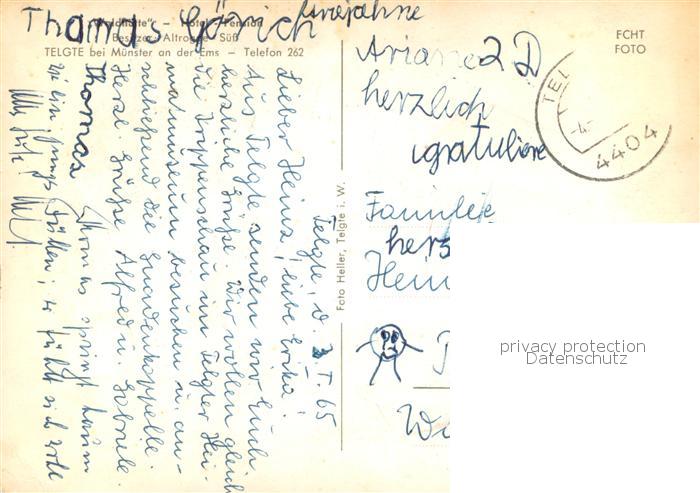 Thomas Görich
"Waldhütte" – Hotel – Pension
Besitzer: Altrogge-Süß
TELGTE bei Münster an der Ems – Telefon 262
Telgte, d. 3.I.65
Lieber Heinz, liebe Erika!
Aus Telgte senden wir Euch
herzliche Grüße. Wir wollen gleich
die Krippenschau im Telgter Hei-
matmuseum besuchen u. an-
schließend die Gnadenkapelle.
Herzl. Grüße Alfred u. Gabriele.
Thomas
Thomas springt herum
wie ein junges Füllen; er fühlt sich
Foto Heller, Telgte i. W.
ECHT
FOTO
TEL
4404
Ariane 2 D
herzlich
gratuliere
Familie
herz
Hein
privacy protection
Datenschutz